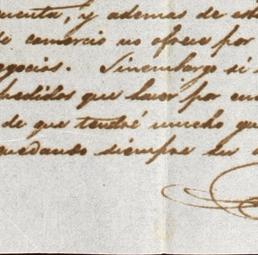 cuenta, y ademas de est
de comercio no ofrece por
negocios. Sinembargo si
pedidos que hacer por cu
de que tendré mucho gu
quedando siempre su